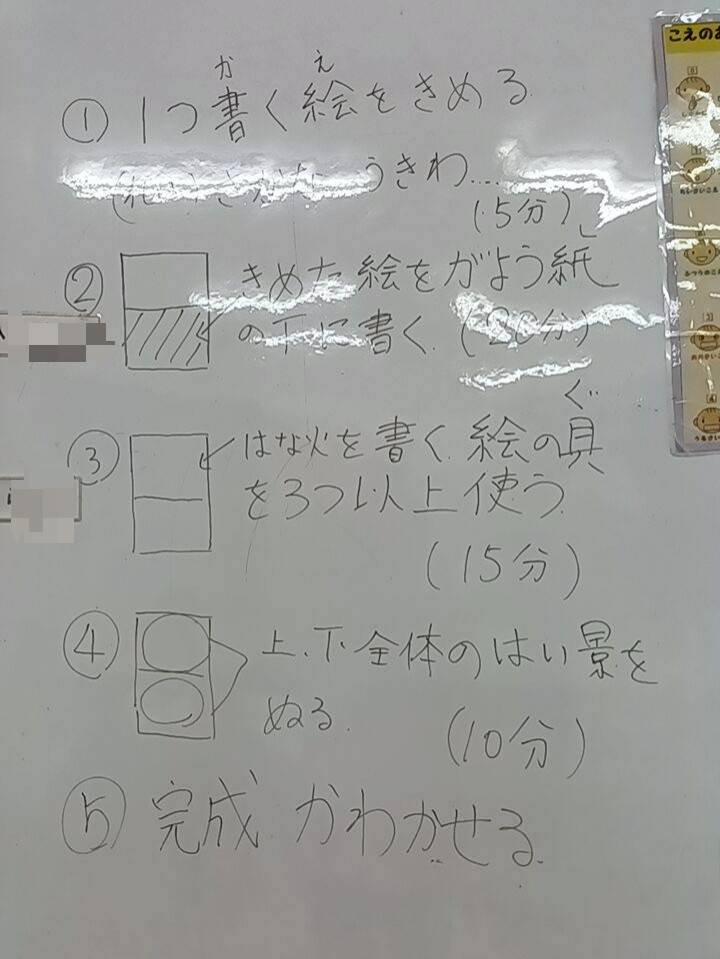 ① 1つ書く絵をきめる
か え
うきわ…
(5分)
② きめた絵をがよう紙
の下に書く.(20分)
③ はな火を書く.絵の具
ぐ
を3つ以上使う.
(15分)
④ 上.下.全体のはい景を
ぬる.
(10分)
⑤ 完成 かわかせる.
こえのお